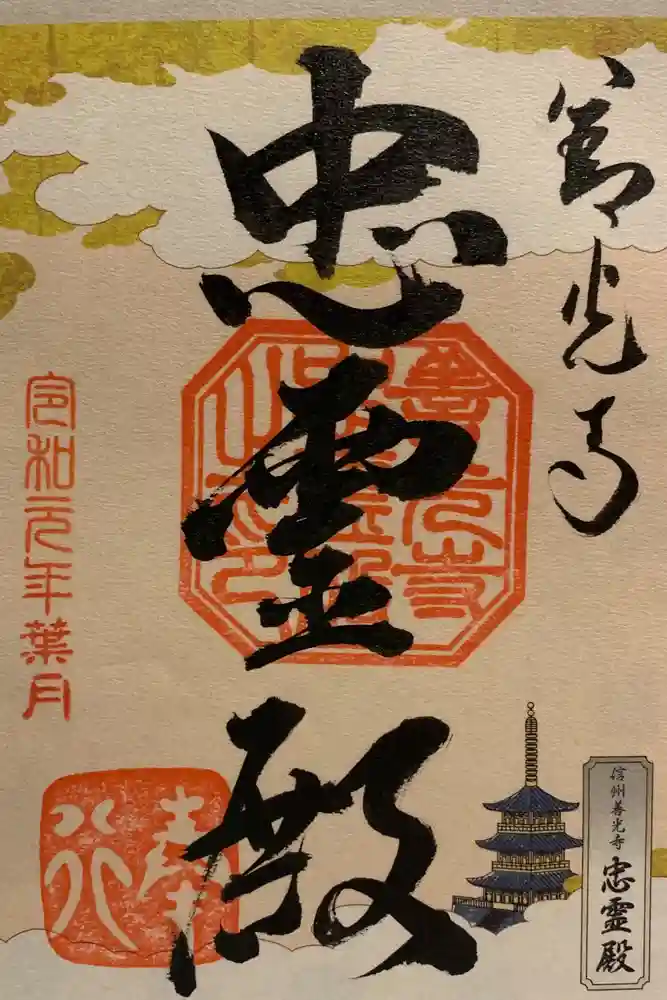 善光寺
忠霊殿
令和元年葉月
奉行
信州善光寺
忠霊殿